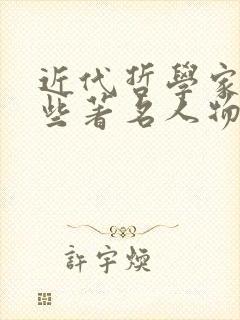 近代哲學家
些著名人物
許宇煥